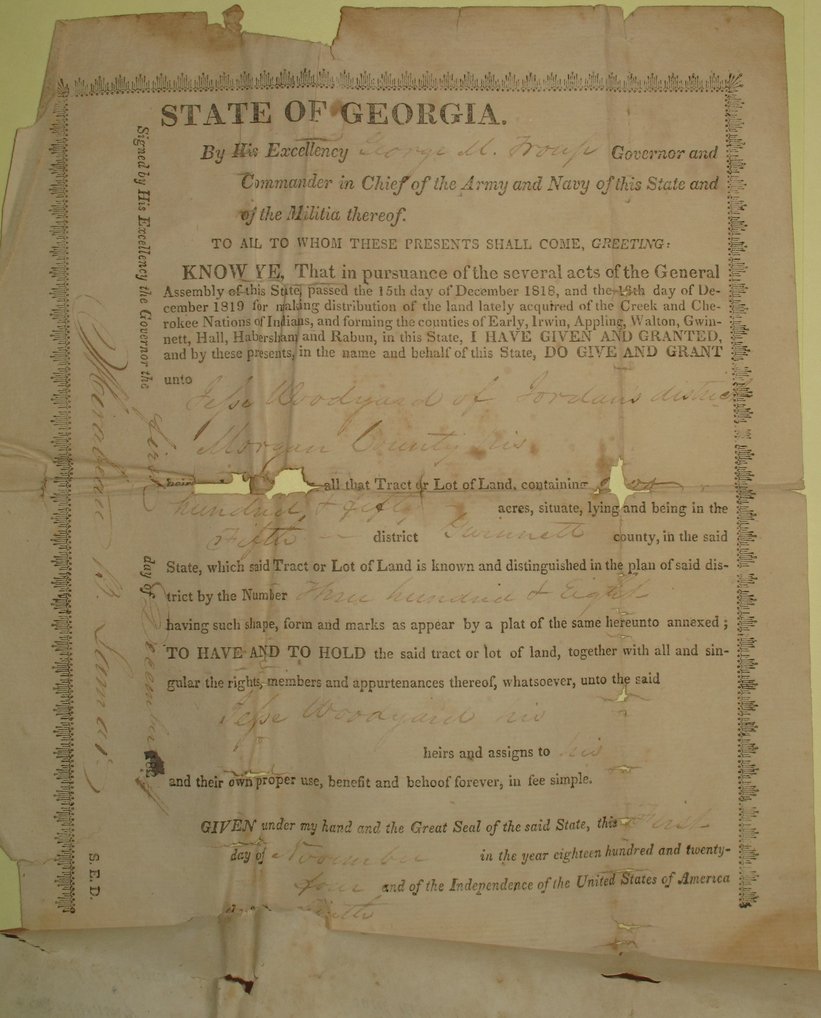 STATE OF GEORGIA.
By His Excellency George M. Troup Governor and
Commander in Chief of the Army and Navy of this State and
of the Militia thereof.
TO ALL TO WHOM THESE PRESENTS SHALL COME, GREETING:
KNOW YE, That in pursuance of the several acts of the General
Assembly of this State, passed the 15th day of December 1818, and the 16th day of De-
cember 1819 for making distribution of the land lately acquired of the Creek and Che-
rokee Nations of Indians, and forming the counties of Early, Irwin, Appling, Walton, Gwin-
nett, Hall, Habersham and Rabun, in this State, I HAVE GIVEN AND GRANTED,
and by these presents, in the name and behalf of this State, DO GIVE AND GRANT
unto
Jesse Woodyard of Jordans district
Morgan County his
heirs all that Tract or Lot of Land, containing two
hundred & fifty acres, situate, lying and being in the
Fifth district Gwinnett county, in the said
State, which said Tract or Lot of Land is known and distinguished in the plan of said dis-
trict by the Number Three hundred & Eight
having such shape, form and marks as appear by a plat of the same hereunto annexed;
TO HAVE AND TO HOLD the said tract or lot of land, together with all and sin-
gular the rights, members and appurtenances thereof, whatsoever, unto the said
Jesse Woodyard his
heirs and assigns to his
and their own proper use, benefit and behoof forever, in fee simple.
GIVEN under my hand and the Great Seal of the said State, this First
day of November in the year eighteen hundred and twenty-
four and of the Independence of the United States of America
Signed by His Excellency the Governor the first day of December 182
Mirabeau B. Lamar
S.E.D.